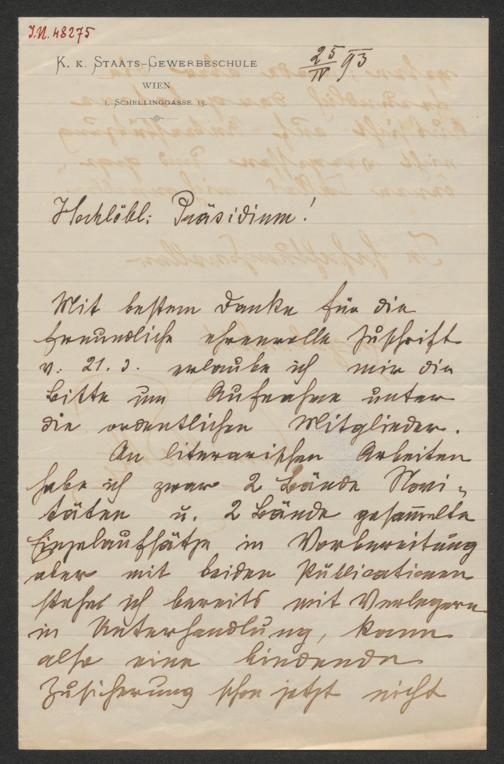 I.N. 48275
K. K. STAATS-GEWERBESCHULE
WIEN
I. SCHELLINGGASSE 13.
25/IV 93
Hochlöbl: Präsidium!
Mit bestem Danke für die
freundliche ehrenvolle Zuschrift
v. 21. d. erlaube ich mir die
Bitte um Aufnahme unter
die ordentlichen Mitglieder.
An literarischen Arbeiten
habe ich zwar 2 Bände Novi-
täten u. 2 Bände gesammelte
Einzelaufsätze in Vorbereitung
aber mit beiden Publicationen
stehe ich bereits mit Verlegern
in Unterhandlung, kann
also eine bindende
Zusicherung schon jetzt nicht